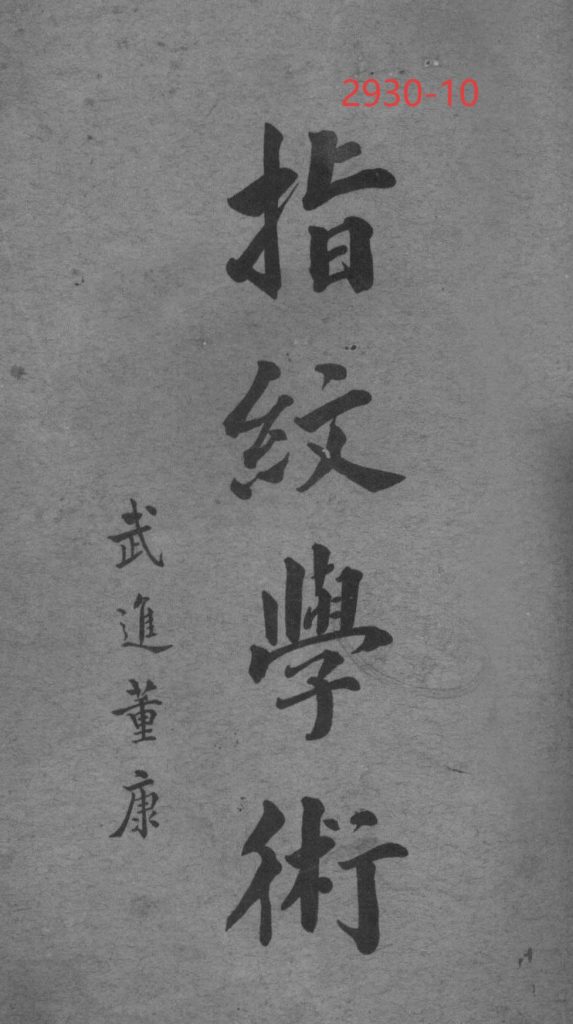 2930-10
指紋學術
武進董康